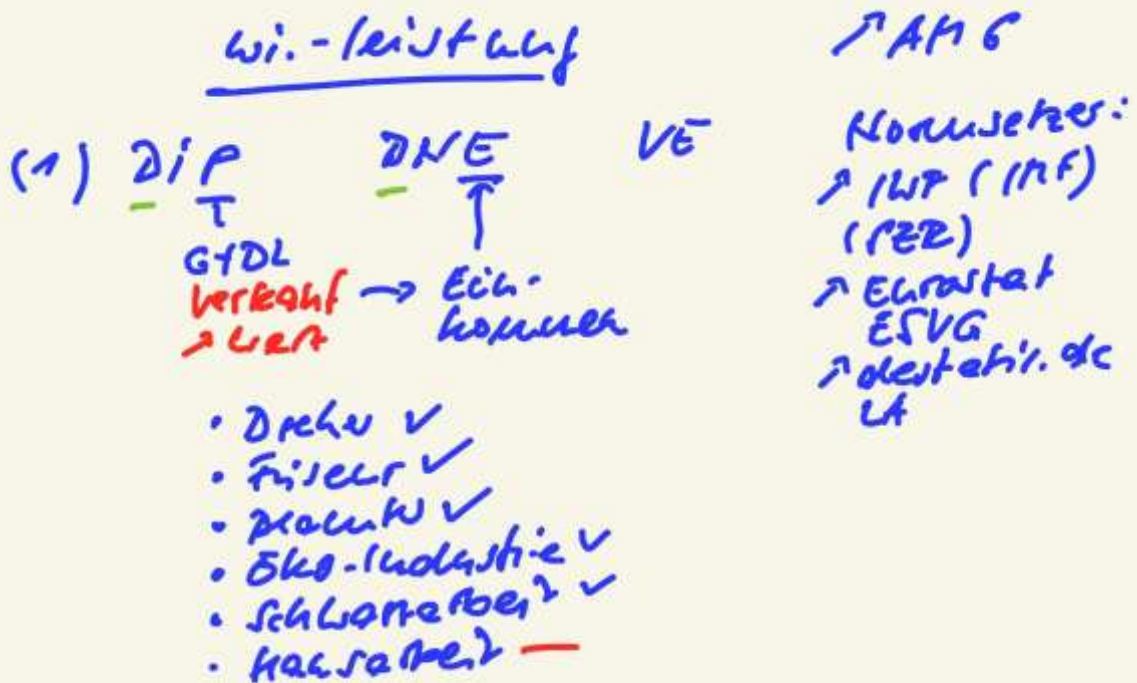 wi.-leistung
(1) BiP DNE VE
G+DL
Verkauf → Ein-
↗ Wert kommen
• Dreher ✓
• Friseur ✓
• Beamter ✓
• Öko-Industrie ✓
• Schwarzarbeit ✓
• Hausarbeit —
↗ AMG
Normsetzer:
↗ IWF (IMF)
↗ Eurostat
ESVG
↗ destatis.de
LA